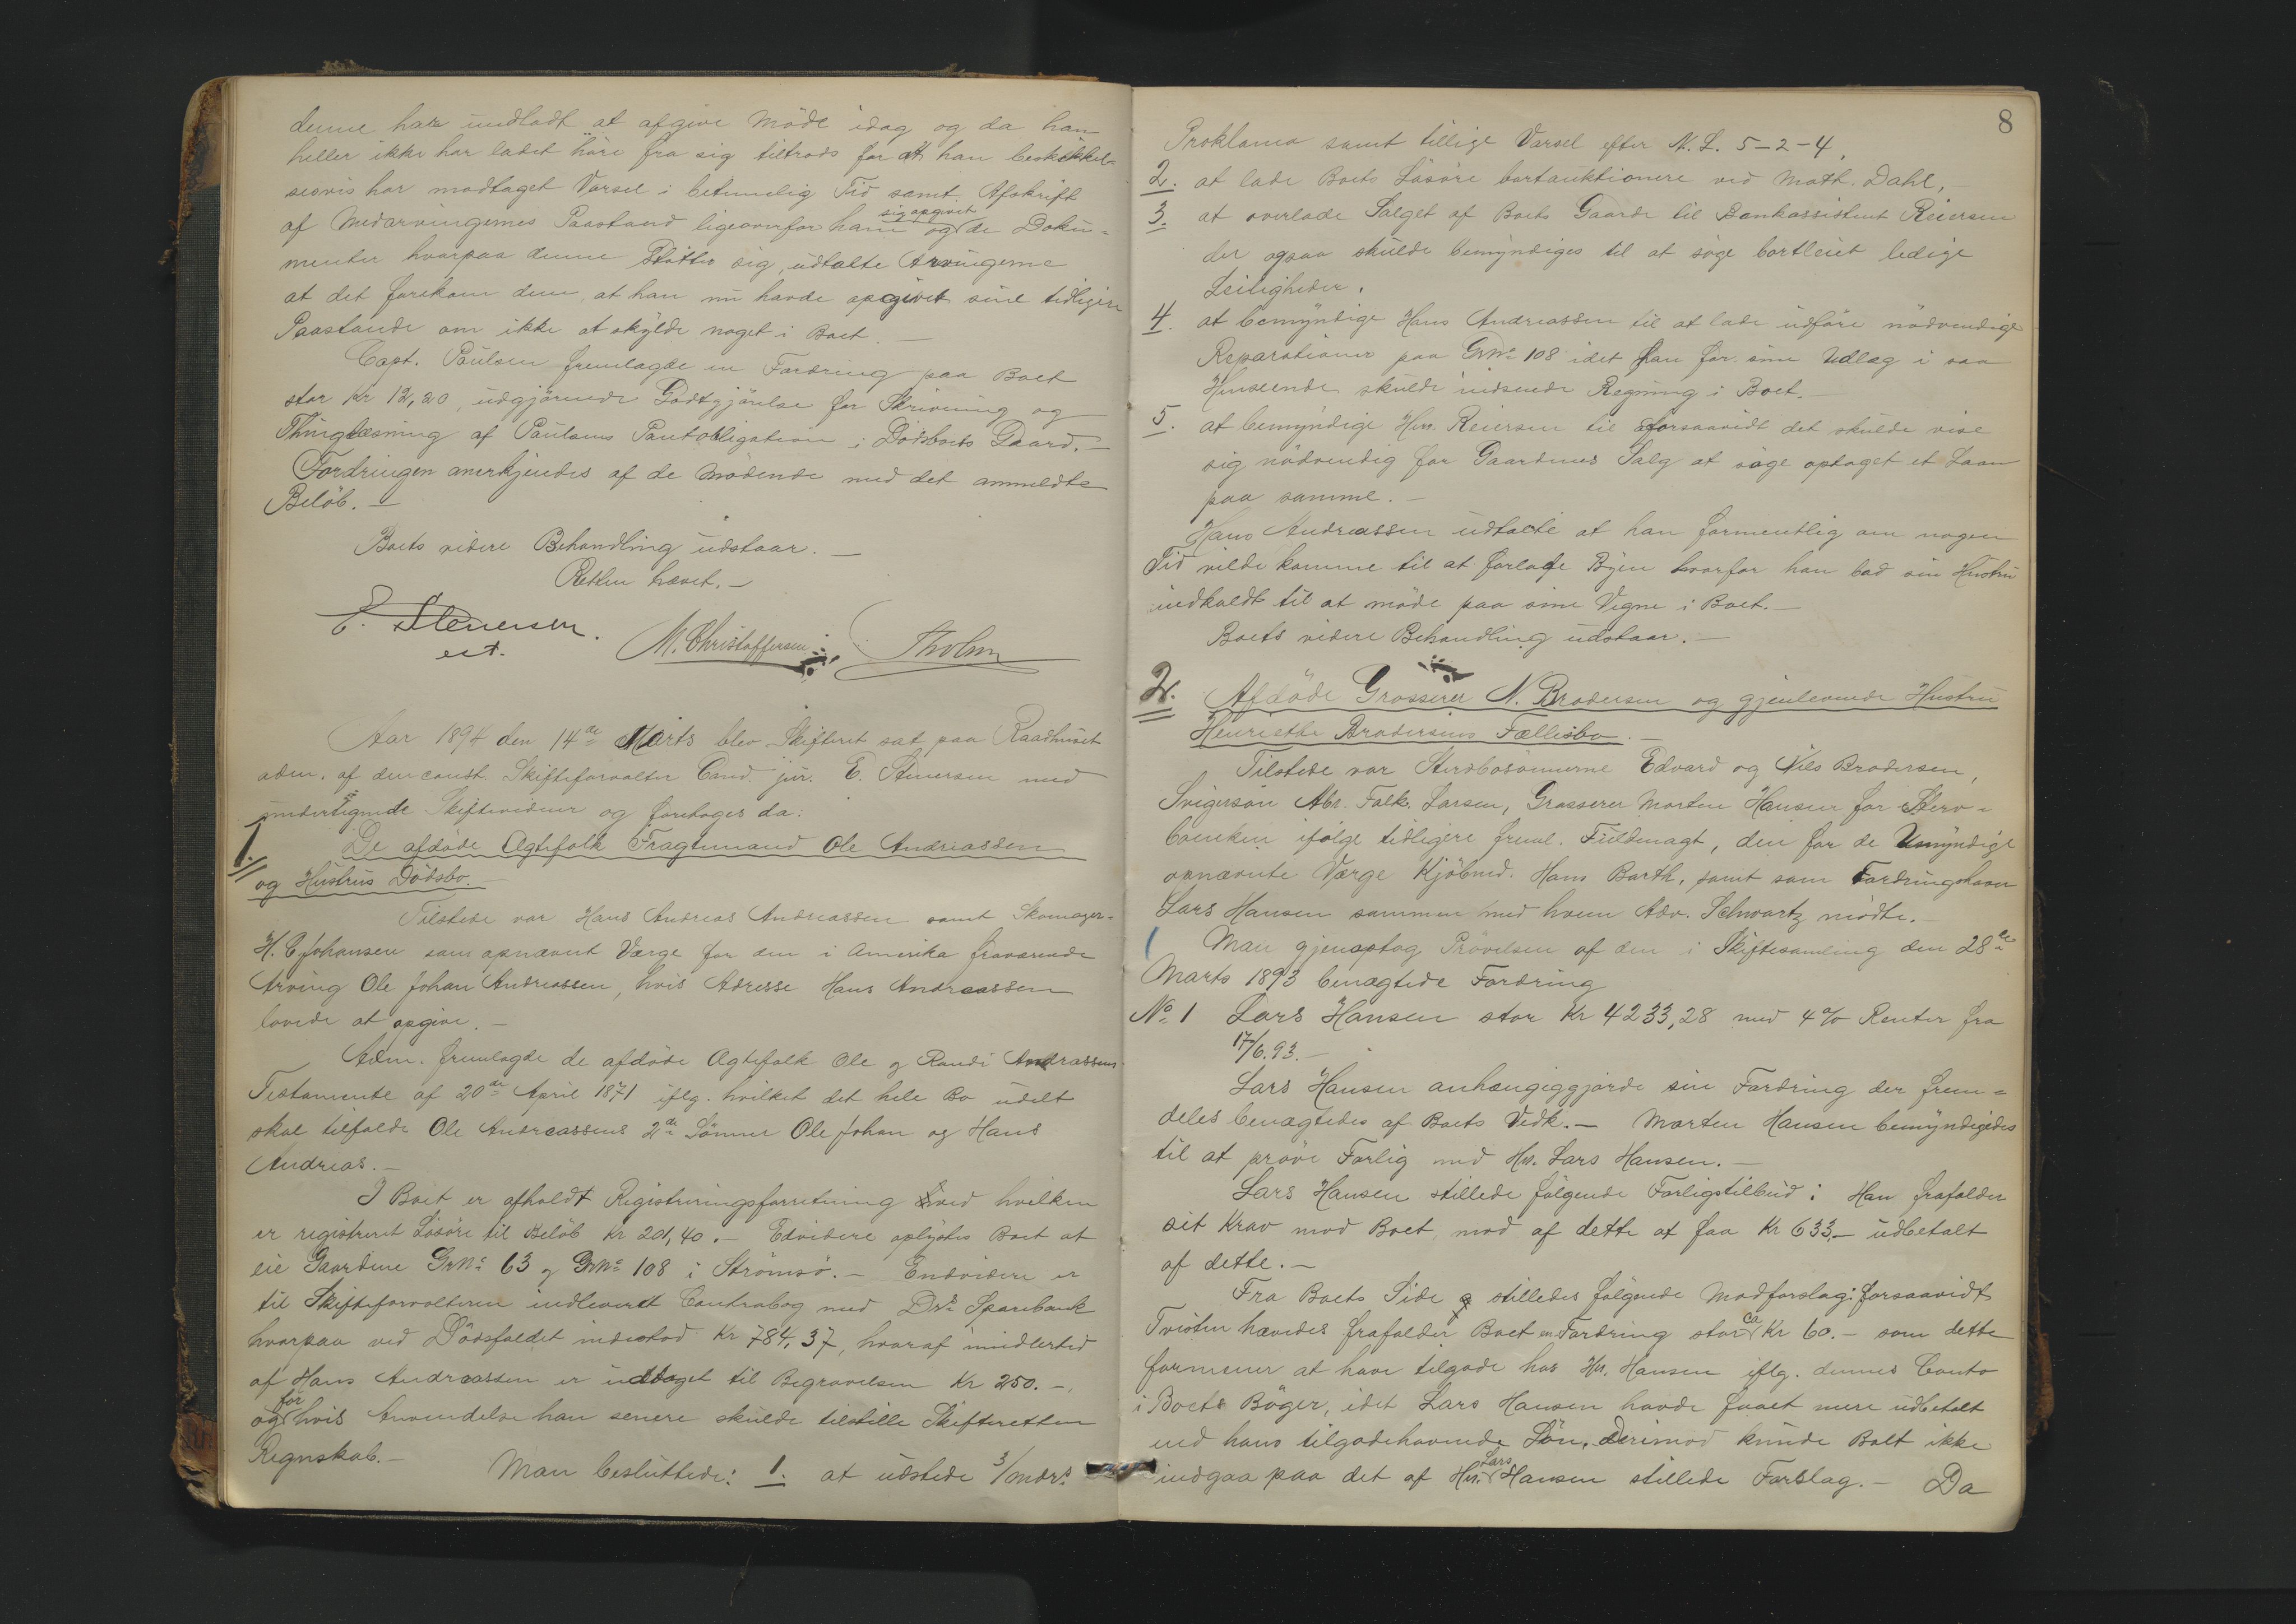 denne har undladt at afgive Möde idag og da han
heller ikke har ladet höre fra sig tiltrods for at han beskikkel=
sesvis har modtaget Varsel i betimelig Tid samt Afskrift
sig opgivet
af Medarvingernes Paastand ligeoverfor ham og de Doku=
menter hvorpaa denne stötter sig, udtalte Arvingerne
at det forekom dem, at han nu havde opgivet sine tidligere
Paastande om ikke at skylde noget i Boet. —
Capt. Paulsen fremlagde en Fordring paa Boet
stor Kr 12,20, udgjörende Godtgjörelse for Skrivning og
Thinglæsning af Paulsens Pantobligation i Dödsboets Gaard. —
Fordringen anerkjendes af de Mödende med det anmeldte
Belöb. —
Boets videre Behandling udstaar. —
Retten hævet. —
E. Stenersen.
cst.
M. Christoffersen
Tholm
Aar 1894 den 14de Marts blev Skifteret sat paa Raadhuset
adm. af den const. Skifteforvalter Cand. jur. E. Stenersen med
undertegnede Skiftevidner og foretoges da:
1. De afdöde Ægtefolk Fragtmand Ole Andreassen
og Hustrus Dödsbo. —
Tilstede var Hans Andreas Andreassen samt Skomager=
H. C. Johansen som opnævnt Værge for den i Amerika fraværende
Arving Ole Johan Andreassen, hvis Adresse Hans Andreassen
lovede at opgive. —
Adm. fremlagde de afdöde Ægtefolk Ole og Randi Andreassens
Testamente af 20de April 1871 iflg. hvilket det hele Bo udelt
skal tilfalde Ole Andreassens 2de Sönner Ole Johan og Hans
Andreas. —
I Boet er afholdt Registreringsforretning ved hvilken
er registreret Lösöre til Belöb Kr 201,40. — Edvidere oplystes Boet at
eie Gaardene GrNo 63 og GrNo 108 i Strömsö. — Endvidere er
til Skifteforvalteren indleveret Contrabog med Drs Sparebank
hvorpaa ved Dödsfaldet indestod Kr 784,37, hvoraf imidlertid
af Hans Andreassen er udtaget til Begravelsen Kr 250. —,
for
og hvis Anvendelse han senere skulde tilstille Skifteretten
Regnskab. —
Man besluttede: 1. at udstede 3/mdrs
8
Proklama samt tillige Varsel efter N. L. 5-2-4,
2. at lade Boets Lösöre bortauktionere ved Math. Dahl, —
3. at overlade Salget af Boets Gaarde til Bankassistent Reiersen
der ogsaa skulde bemyndiges til at söge bortleiet ledige
Leiligheder.
4. at bemyndige Hans Andreassen til at lade udföre nödvendige
Reparationer paa GrNo 108 idet han for sine Udlæg i saa
Henseende skulde indsende Regning i Boet. —
5. at bemyndige Hrr. Reiersen til forsaavidt det skulde vise
sig nödvendig for Gaardenes Salg at söge optaget et Laan
paa samme. —
Hans Andreassen udtalte at han formentlig om nogen
Tid vilde komme til at forlade Byen hvorfor han bad sin Hustru
indkaldt til at möde paa sine Vegne i Boet. —
Boets videre Behandling udstaar. —
2. Afdöde Grosserer N. Brodersen og gjenlevende Hustru
Henriette Brodersens Fællesbo. —
Tilstede var Stervbosönnerne Edvard og Nils Brodersen,
Svigersön Abr. Falk. Larsen, Grosserer Morten Hansen for Sterv=
boenken ifölge tidligere freml. Fuldmagt, den for de Umyndige
opnævnte Værge Kjöbmd. Hans Barth, samt som Fordringshaver
Lars Hansen sammen med hvem Adv. Schwartz mödte. —
Man gjenoptog Prövelsen af den i Skiftesamling den 28de
Marts 1893 benægtede Fordring
No 1 Lars Hansen stor Kr 4233,28 med 4% Renter fra
17/6.93. —
Lars Hansen anhængiggjorde sin Fordring der frem=
deles benægtedes af Boets Vedk. — Morten Hansen bemyndigedes
til at pröve Forlig med Hr. Lars Hansen. —
Lars Hansen stillede fölgende Forligstilbud: Han frafalder
sit Krav mod Boet, mod af dette at faa Kr 633,— udbetalt
af dette. —
Fra Boets Side stilledes fölgende Modforslag: forsaavidt
ca
Tvisten hævedes frafalder Boet en Fordring stor Kr 60. — som dette
formener at have tilgode hos Hr. Hansen iflg. dennes Conto
i Boets Böger, idet Lars Hansen havde faaet mere udbetalt
end hans tilgodehavende Lön. Derimod kunde Boet ikke
Lars
indgaa paa det af Hr. Hansen stillede Forslag. — Da